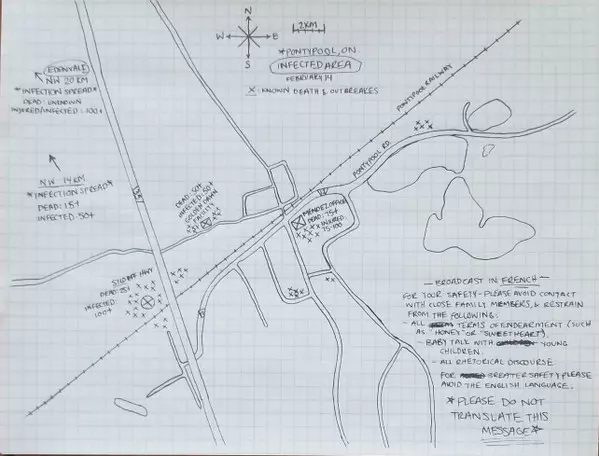 N
W
E
S
2KM
*PONTYPOOL, ON.
INFECTED AREA
FEBRUARY 14
X : KNOWN DEATH & OUTBREAKES
EDENVALE
NW 20 KM
*INFECTION SPREAD*
DEAD: UNKNOWN
INJURED/INFECTED: 100+
NW 14KM
*INFECTION SPREAD*
DEAD: 15+
INFECTED: 50+
PONTYPOOL RAILWAY
PONTYPOOL RD
DEAD: 50+
INFECTED: 50+
FACILITY
MENDEZ OFFICE
DEAD: 75+
INJURED:
75-100
35
HWY
DEAD: 25+
INFECTED:
100+
— BROADCAST IN FRENCH —
FOR YOUR SAFETY - PLEASE AVOID CONTACT
WITH CLOSE FAMILY MEMBERS, & RESTRAIN
FROM THE FOLLOWING:
- ALL TERMS OF ENDEARMENT (SUCH
AS "HONEY" OR "SWEETHEART").
- BABY TALK WITH YOUNG
CHILDREN.
- ALL RHETORICAL DISCOURSE
FOR GREATER SAFETY PLEASE
AVOID THE ENGLISH LANGUAGE.
*PLEASE DO NOT
TRANSLATE THIS
MESSAGE*